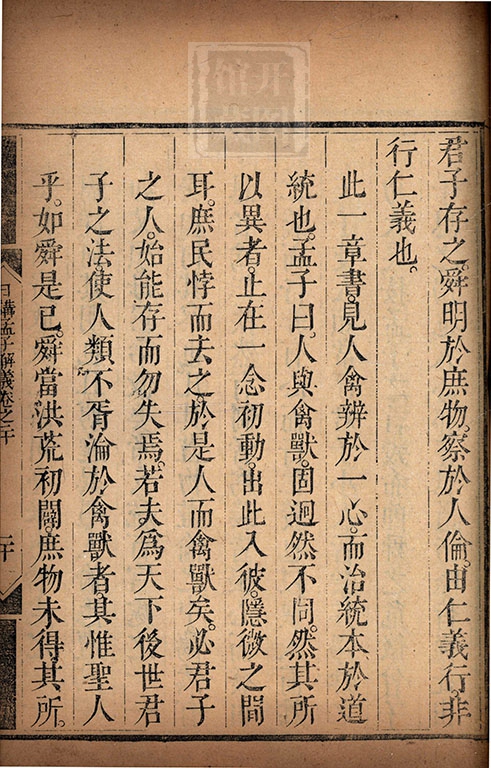 君子存之。舜明於庶物。察於人倫。由仁義行。非
行仁義也。
此一章書。見人禽辨於一心。而治統本於道
統也。孟子曰。人與禽獸。固迥然不同。然其所
以異者。止在一念初動。出此入彼。隱微之間
耳。庶民悖而去之。於是人而禽獸矣。必君子
之人。始能存而勿失焉。若夫。爲天下後世君
子之法。使人類不胥淪於禽獸者。其惟聖人
乎。如舜是已。舜當洪荒初闢。庶物未得其所。
日講孟子解義卷之二十 二十